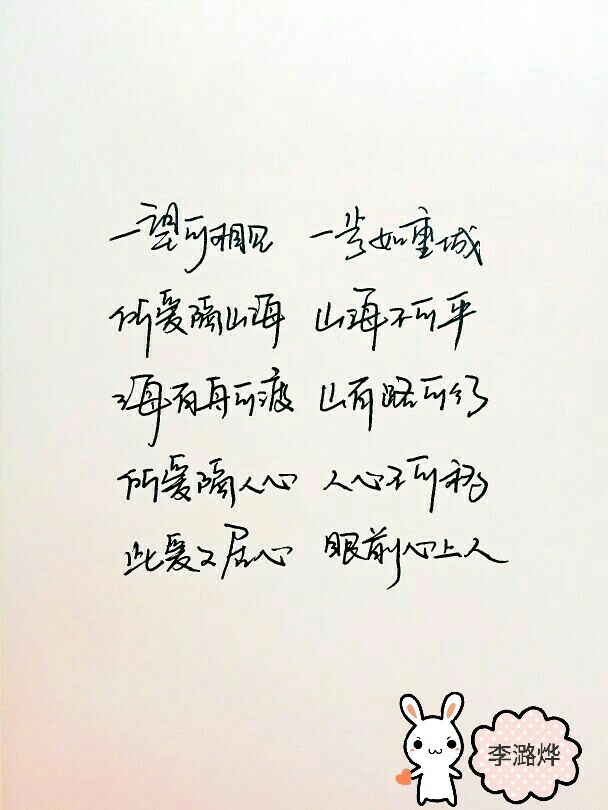 一望可相见 一步如重城
所爱隔山海 山海不可平
海有舟可渡 山有路可行
所爱隔人心 人心不可移
此爱又居心 眼前心上人
李潞烨